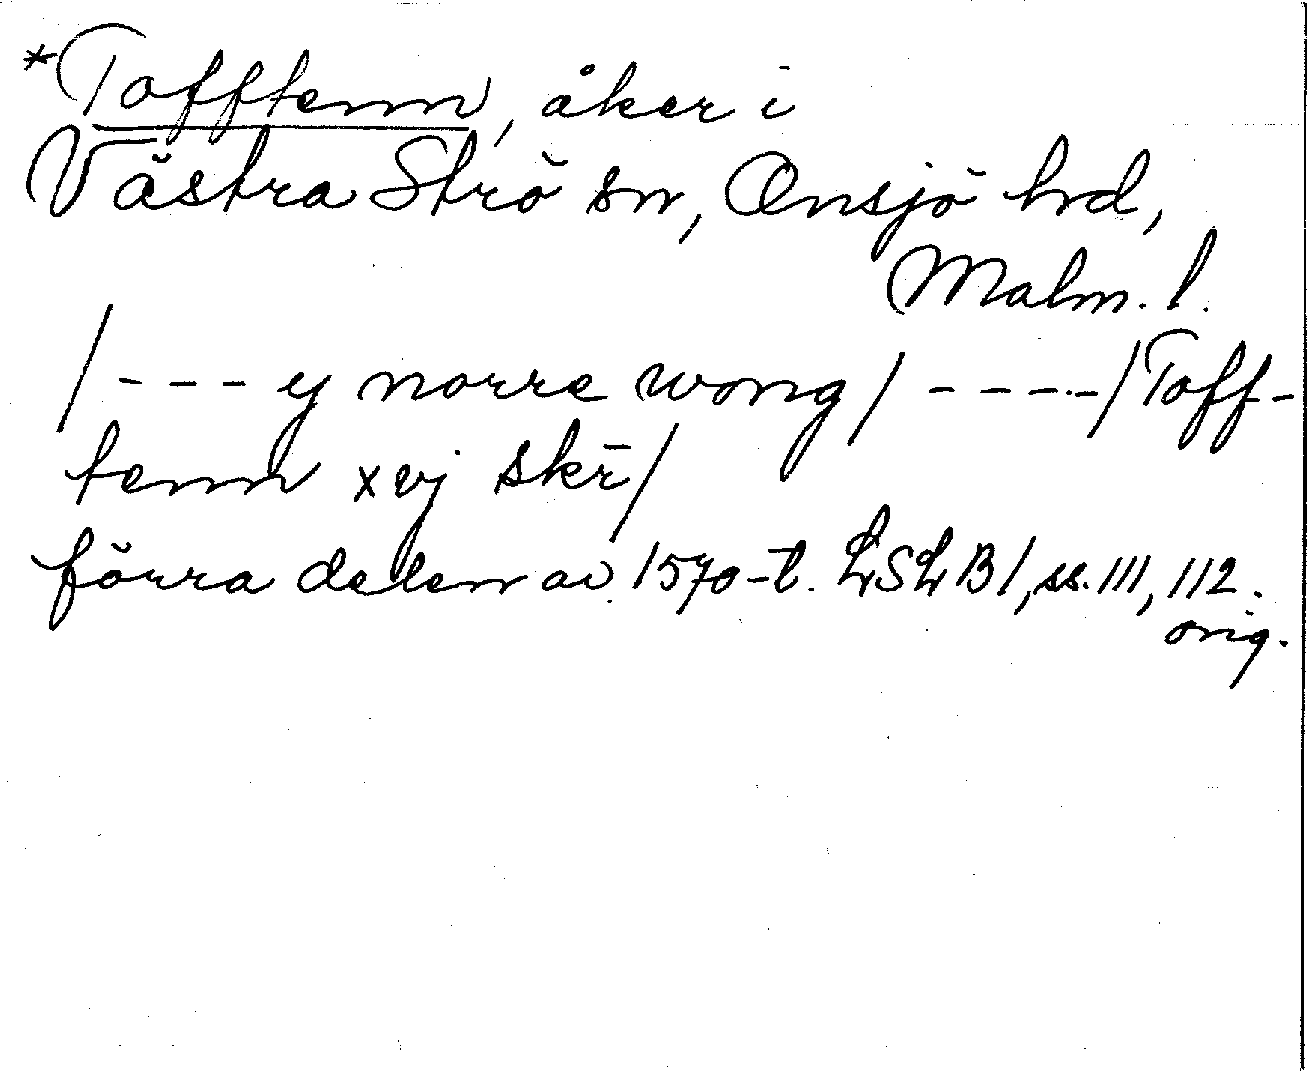 *Tofftenn, åker i
Västra Strö sn, Onsjö hrd,
Malm. l.
/--- y norre wong/ ----/Toff-
tenn xvj skr̄/
förra delen av 1570-t. LSLB1, ss. 111, 112.
orig.